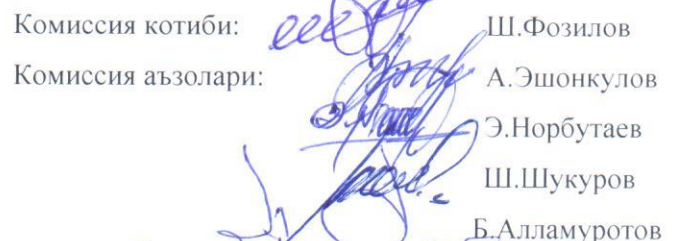 Комиссия котиби: Ш.Фозилов
Комиссия аъзолари: А.Эшонкулов
Э.Норбутаев
Ш.Шукуров
Б.Алламуротов